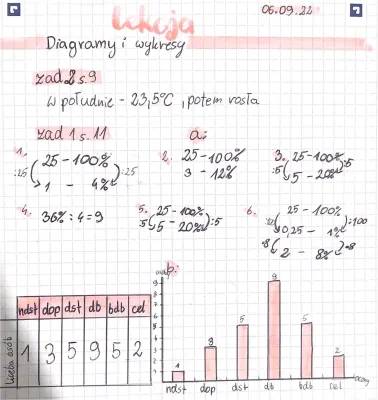 lekcja
06.09.22
Diagramy i wykresy
zad 2 s.9
W południe - 23,5°C, potem rosła
zad 1 s.11
a:
1. 25 - 100%
:25 :25
1 - 4%
2. 25 - 100%
3 - 12%
3. 25 - 100%
:5 :5
5 - 20%
4. 36% : 4 = 9
5. 25 - 100%
:5 :5
5 - 20%
6. 25 - 100%
:100
0,25 - 1%
·8 ·8
2 - 8%
b:
ndst dop dst db bdb cel
liczba osób
1 3 5 9 5 2
9
8
7
6
5
4
3
2
1
1 3 5 9 5 2
ndst dop dst db bdb cel
oceny